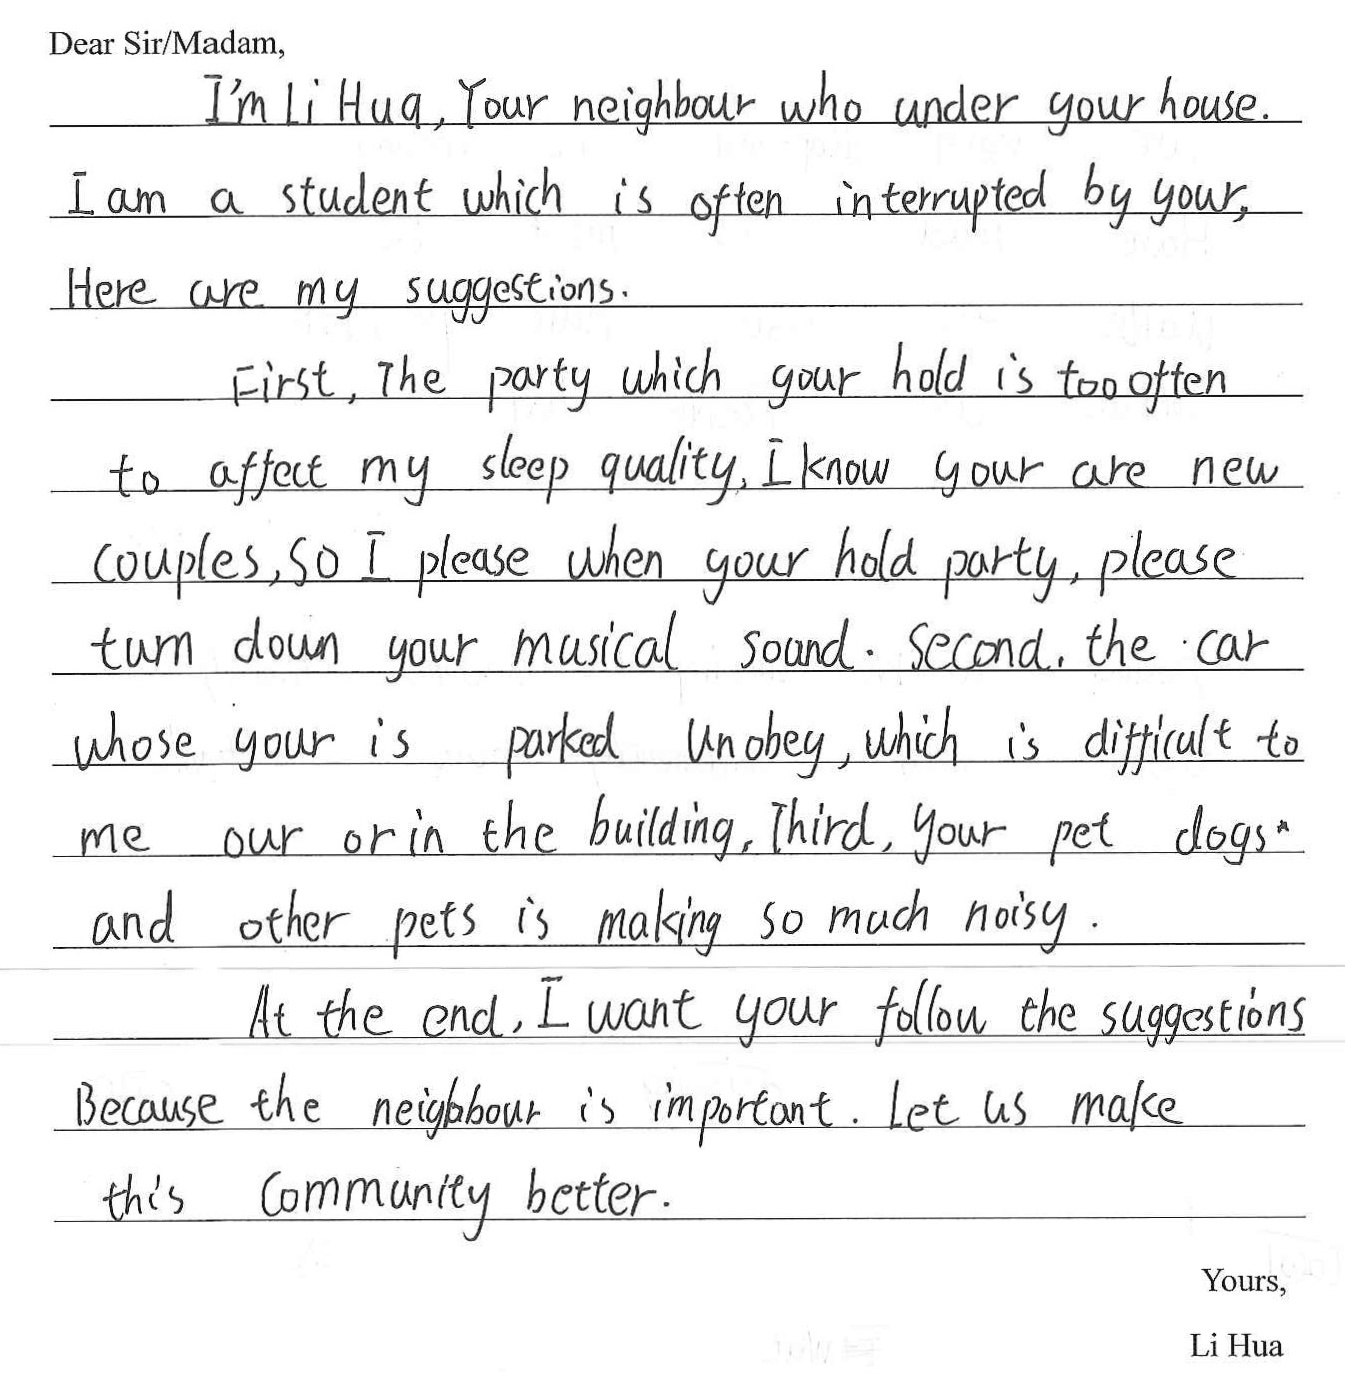 Dear Sir/Madam,
I'm Li Hua, Your neighbour who under your house.
I am a student which is often interrupted by your,
Here are my suggestions.
First, The party which your hold is too often
to affect my sleep quality, I know your are new
couples, So I please when your hold party, please
turn down your musical sound. Second, the car
whose your is parked Unobey, which is difficult to
me our or in the building, Third, Your pet dogs
and other pets is making so much noisy.
At the end, I want your follow the suggestions
Because the neighbour is important. Let us make
this Community better.
Yours,
Li Hua